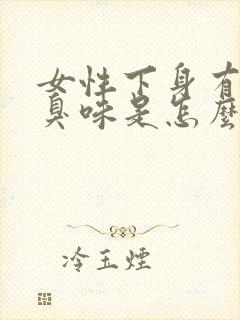 女性下身有
臭味是怎麼
冷玉煙